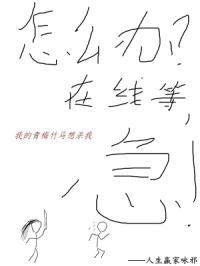 怎么办?
在线等,
我的青梅竹马想杀我
急!
——人生赢家咏邪